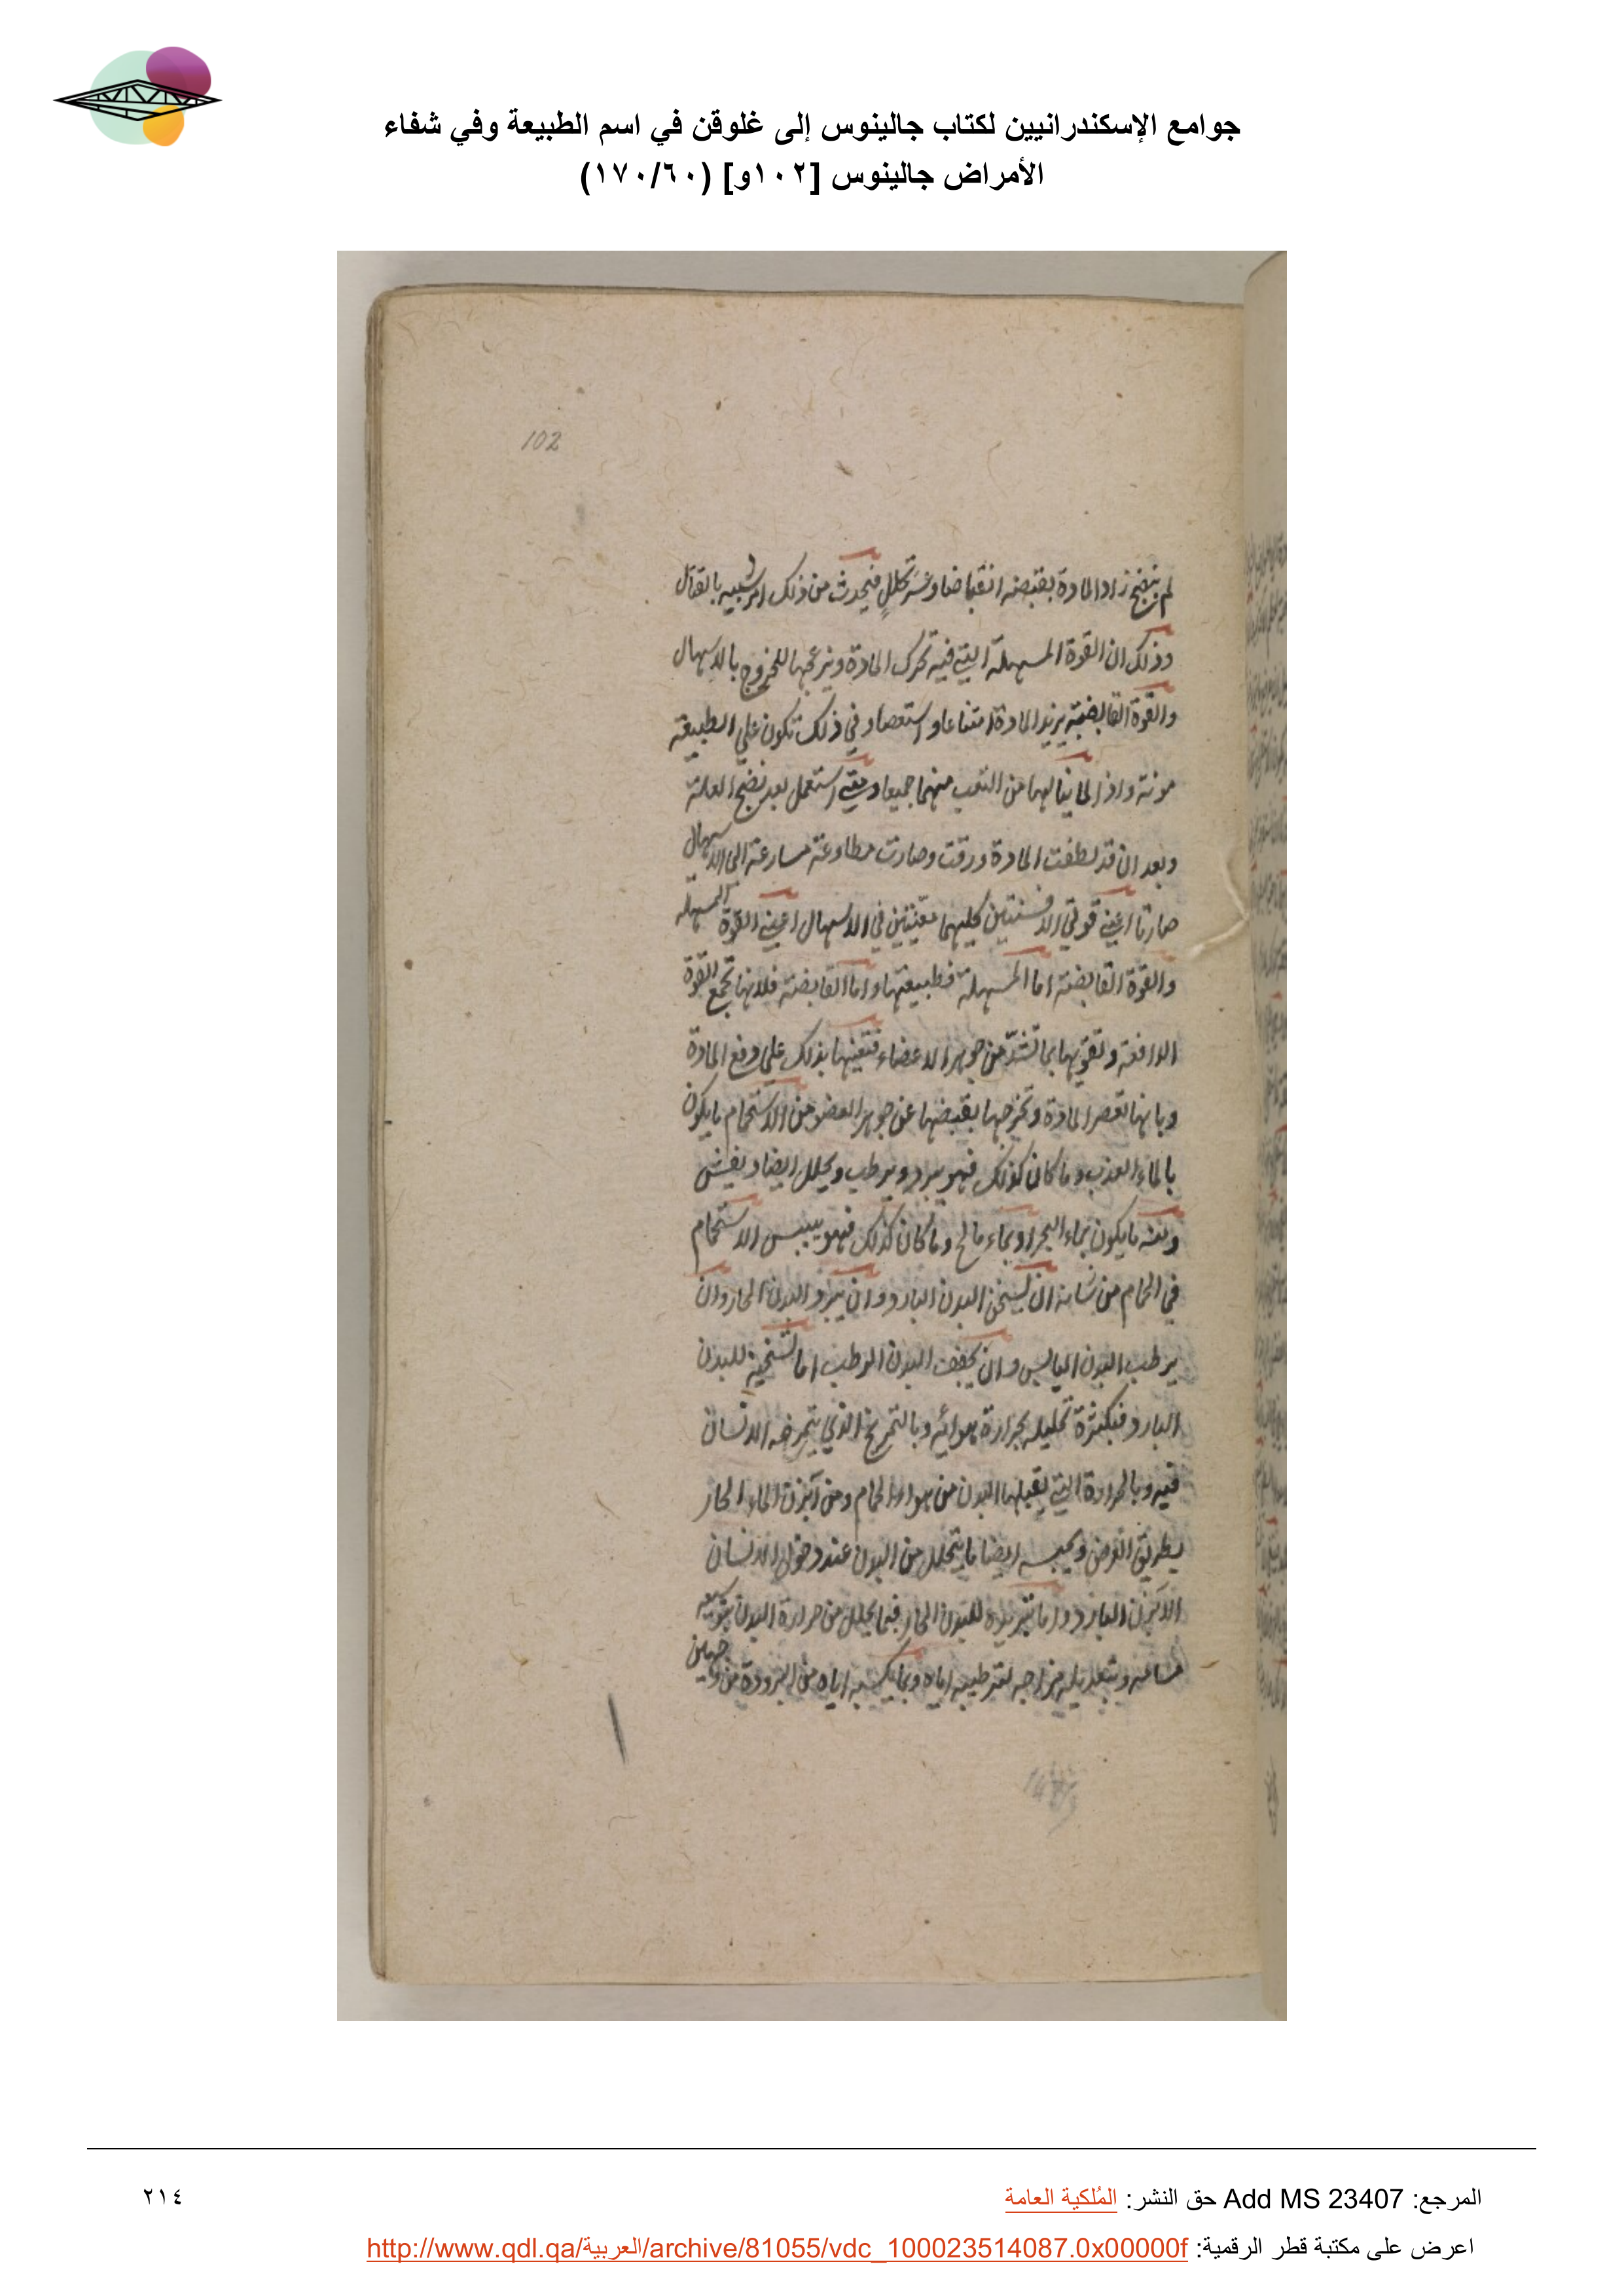 جوامع الإسكندرانيين لكتاب جالينوس إلى غلوقن في اسم الطبيعة وفي شفاء
الأمراض جالينوس [١٠٢و] (١٧٠/٦٠)
102
لم ينضج زاد المادة بقبضه انقباضا وعسر تحلل فيحدث من ذلك امر شبيه بالقتال
وذلك ان القوة المسهلة التي فيه تحرك المادة ويزعجها للخروج بالاسهال
والقوة القابضة يزيد المادة امتناعا و استعصاء وفي ذلك تكون على الطبيعة
مونة واذى لما ينالها من التعب منهما جميعا ومتى استعمل بعد نضج العلة
وبعد ان قد لطفت المادة ورقت وصارت مطاوعة مسارعة الى الاسهال
صارتا اعني قوتي الافسنتين كليهما معينتين في الاسهال اعني القوة المسهلة
والقوة القابضة اما المسهلة فطبيعتها واما القابضة فلانها تجمع القوة
الدافعة وتقويها بما تشد من جوهر الاعضاء فتعينها بذلك على دفع المادة
وبانها تعصر المادة وتخرجها بقبضها عن جوهر العضو من الاستحمام ما يكون
بالماء العذب وما كان كذلك فهو يبرد ويرطب ويحلل ايضا ويفش
ومنه ما يكون بماء البحر او بماء مالح وما كان كذلك فهو ييبس الاستحمام
في الحمام من شانه ان يسخن البدن البارد وان يبرد البدن الحار وان
يرطب البدن اليابس وان يجفف البدن الرطب اما تسخينه للبدن
البارد فبكثرة تحليله بحرارة هوائه وبالتمريخ الذي يتمرخه الانسان
فيه وبالحرارة التي يقبلها البدن من هواء الحمام ومن آبزن الماء الحار
بطريق العرض ويحبسه ايضا ما يتحلل من البدن عند دخول الانسان
الابزن البارد واما تبريده للبدن الحار فبما يحلل من حرارة البدن بتوسيعه
مسامه وبتعديله مزاجه بترطيبه اياه وبما يكسبه اياه من البرودة من وجهين
المرجع: Add MS 23407 حق النشر: المُلكية العامة
٢١٤
اعرض على مكتبة قطر الرقمية: http://www.qdl.qa/العربية/archive/81055/vdc_100023514087.0x00000f